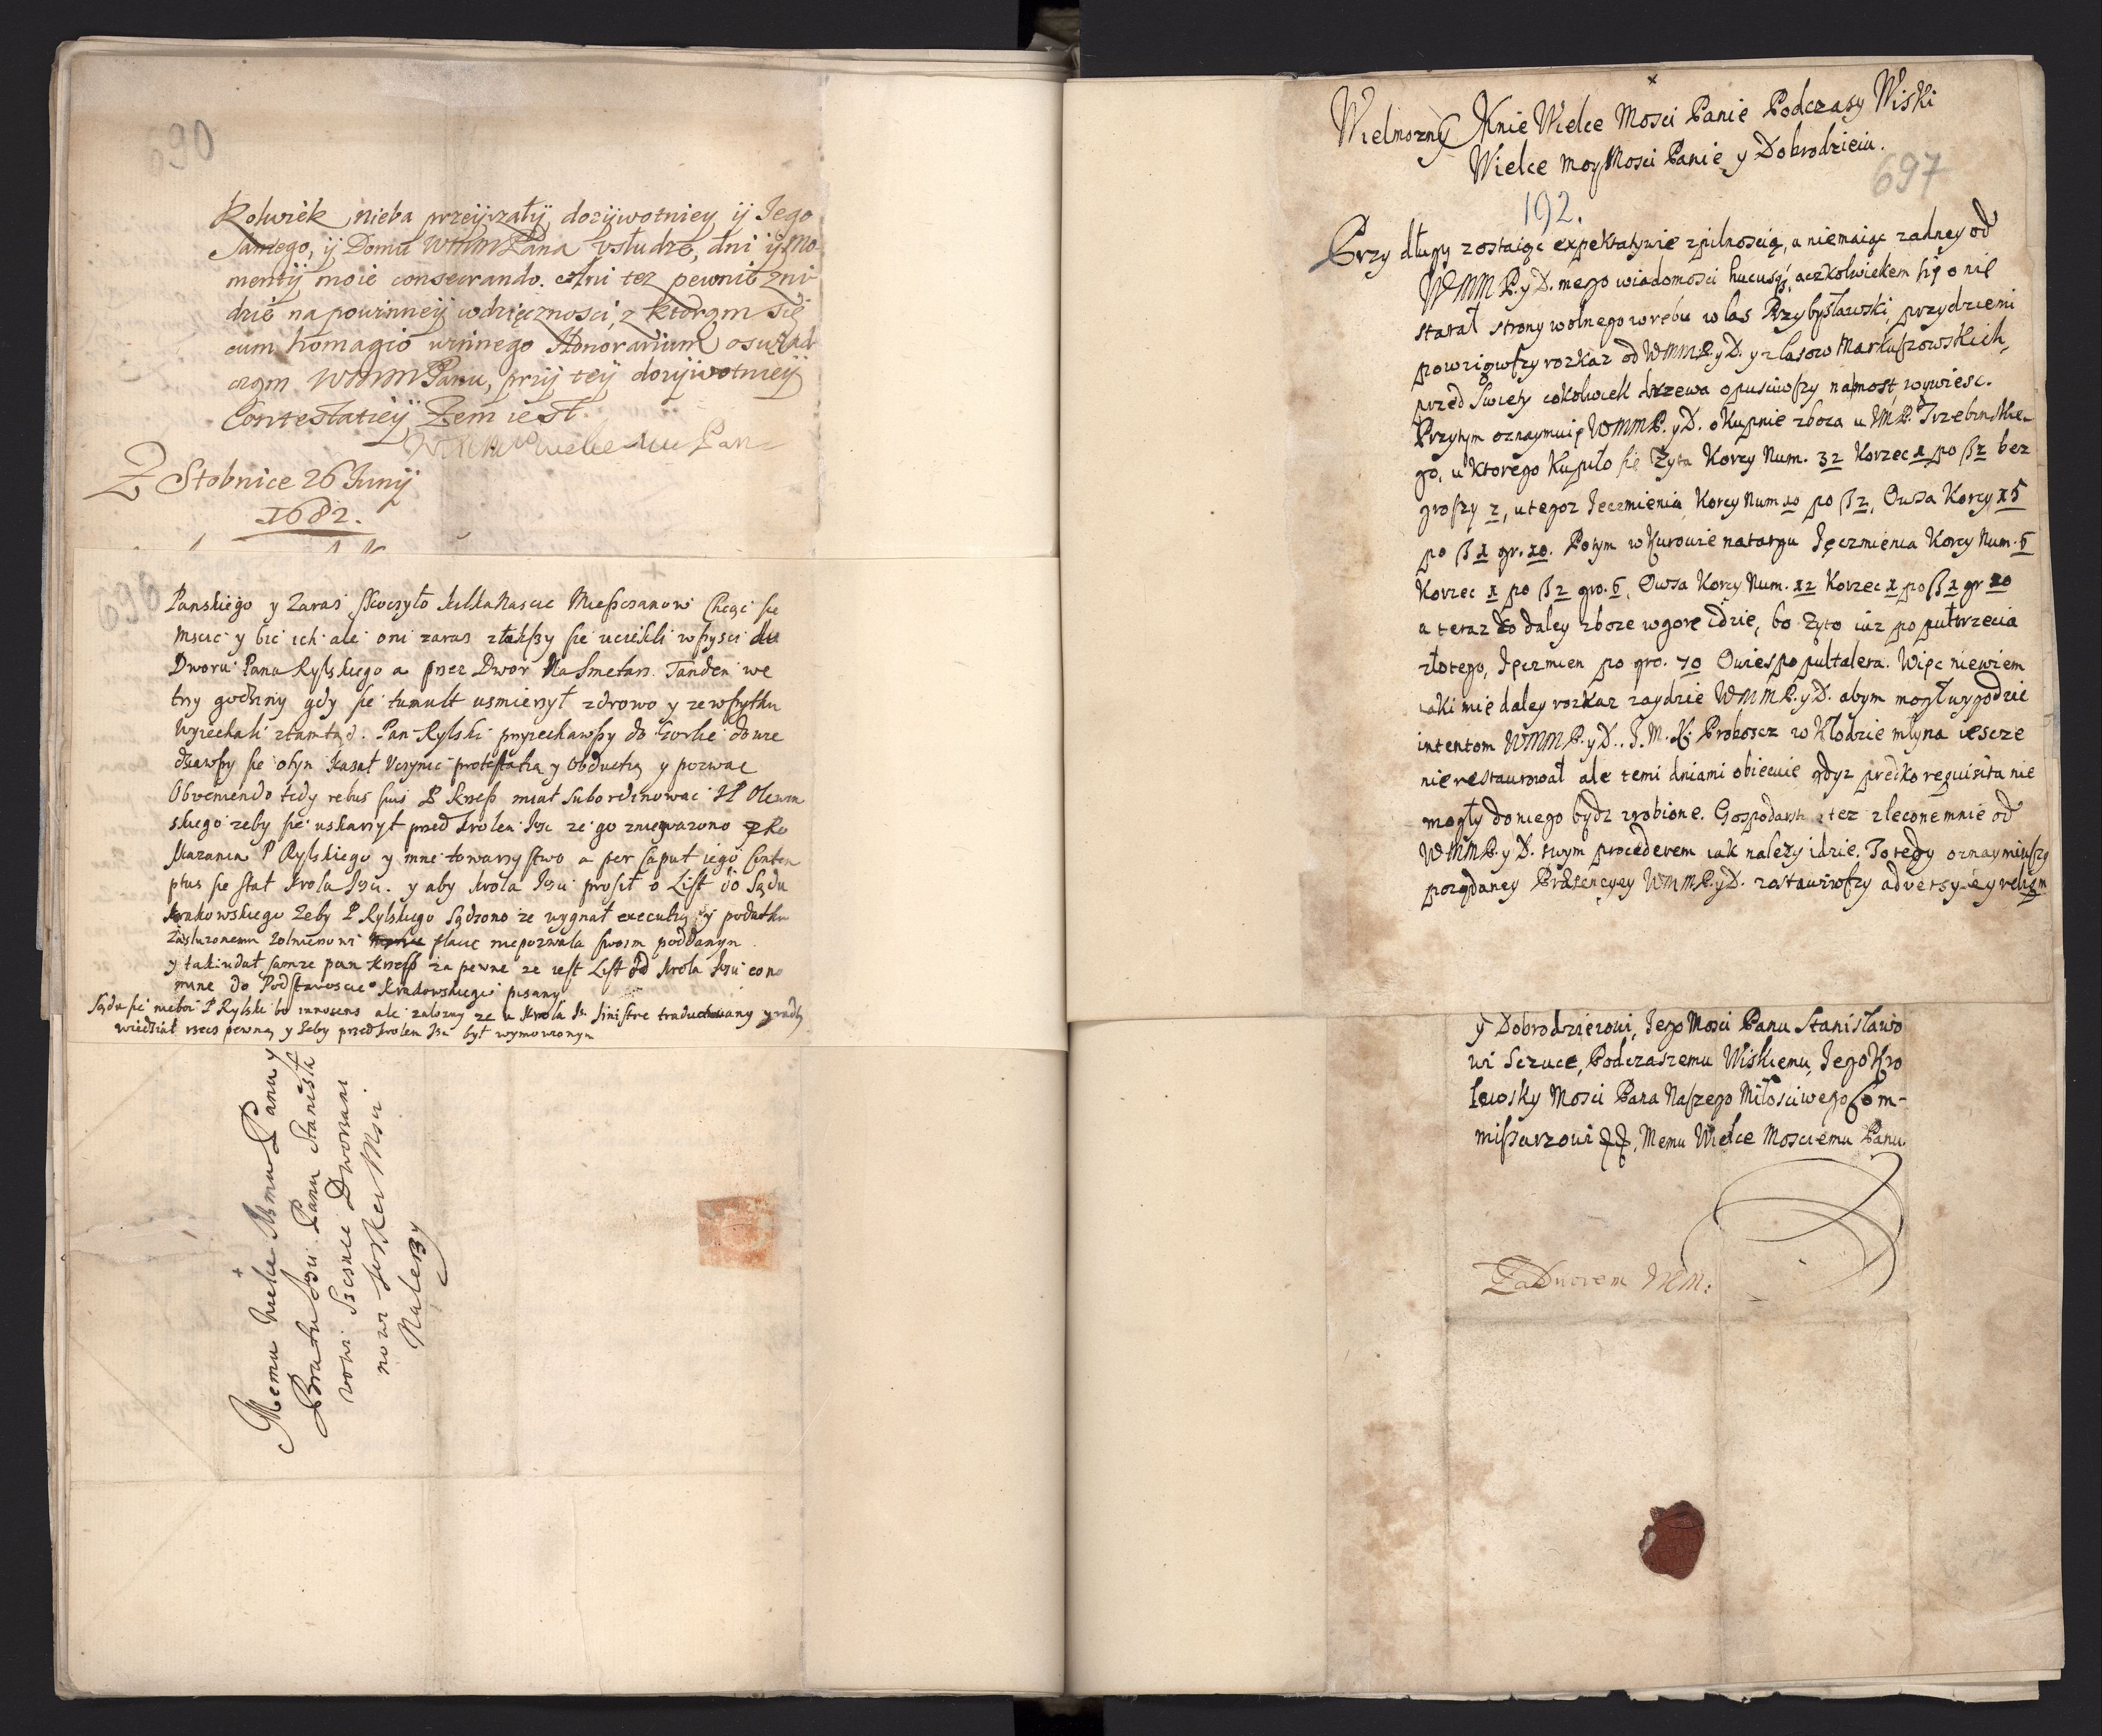 690
Kolwiek nieba przeyrzały, dozywotniey ij Jego
Samego, ij Domu WMM Pana usłudze, dni ij Mo
mentÿ moie consecrando. Ani tez pewnie zni
dzie na powinneij wdzięcznosci, z ktorąm się
cum homagio winnego Honorarium oswiad
czam WMM Panu, przÿ teÿ dozÿwotnieÿ
Contestatieÿ Zem iest.
Z Stobnice 26 Junij
1682.
696
Panskiego y Zaraz skoczyło kilka nascie Miesczanow Chcąc sie
Mscic y bic ich ale oni zaraz zląkszy sie uciekli wszysci do
Dworu Pana Rylskiego a przez Dwor Na Smetarz. Tandem we
trzy godziny gdy sie tumult usmierzył zdrowo y ze wszytkim
Wyiechali ztamtąd. Pan Rylski przyiechawszy do Gorlic dowie
dziawszy sie o tym kazał Uczynic protestatią y Obductią y pozwac
Obveniendo tedy rebus suis P Kniess miał Subordinowac
skiego zeby sie uskarzył przed krolem Jm ze go zniewazono
skazania P Rylskiego y inne towarzystwo a per Caput iego Contem
ptus sie stał krola Jm. y aby krola Jm prosił o List do Sądu
Krakowskiego Zeby P Rylskiego Sądzono ze wygnał executią y podatku
zasłuzonemu Zolnierzowi płacic niepozwala swoim poddanym
y tak udał sam ze pan za pewne ze iest List od krola Jm eo no
mine do Podstarosciego Krakowskiego pisany
Sądu sie nieboi P Rylski bo innocens ale załosny ze u Krola Jm Sinistre traduciowany y radby
wiedział rzecz pewną y Zeby przed krolem Jm był wymowionym
Memu Wielce Mmu Panu y
Bratu Jmsci Panu Stanisła
wowi Sczuce Dworzani
nowi JoKrMsci
Nalezy
Wielmozny Mnie Wielce Mosci Panie Podczaszy Wiski
Wielce moy Mosci Panie y Dobrodzieiu.
697
192.
Przy długy zostaiąc expektatywie z pilnoscią, a niemaiąc zadney od
WMM P. y D. mego wiadomosci hucusq, aczkolwiekem się o nię
starał strony wolnego wrębu w las Przybysławski, przydziemi
powziąwszy rozkaz od WMMP. y D. y z lasow Markuszowskich,
przed Swięty cokolwiek drzewa opusciwszy na most, wywiesc.
Przytym oznaymuię WMMP. y D. o kupnie zboza u IMP. Trzebinskie
go, u ktorego kupiło się Zyta Korcy Num. 32 Korzec 1 po ß 2 bez
groszy 2, u tegoz Jeczmienia Korcy Num 10 po ß 2, Owsa Korcy 15
po ß 1 gr. 10. Potym w Kurowie natargu Jęczmienia Korcy Num. 6
Korzec 1 po ß 2 gro. 6, Owsa Korcy Num. 12 Korzec 1 po ß 1 gr 10
a teraz co daley zboze wgore idzie, bo Zyto iuz po pułtrzecia
złotego, Jęczmien po gro. 70 Owies po pultalera. Więc niewiem
iaki mie daley rozkaz zaydzie WMMP. y D. abym mogł wygodzic
intentom WMMP. y D. J. M. X. Proboscz w Kłodzie młyna iescze
nie restaurował ale temi dniami obiecuie gdyz prędko requisita nie
mogły do niego bydz zrobione. Gospodarstwo tez zlecone mnie od
WMMP. y D. swym procederem iak nalezy idzie. To tedy oznaymiwszy
poządaney Præsencyey WMMP. y D. zostawiwszy
y Dobrodzieiowi, Jego Mosci Panu Stanisławo
wi Sczuce, Podczaszemu Wiskiemu, Jego Kro
lewsky Mosci Pana Naszego Miłosciwego Com-
missarzowi etc, Memu Wielce Mosciemu Panu
Za Dworem